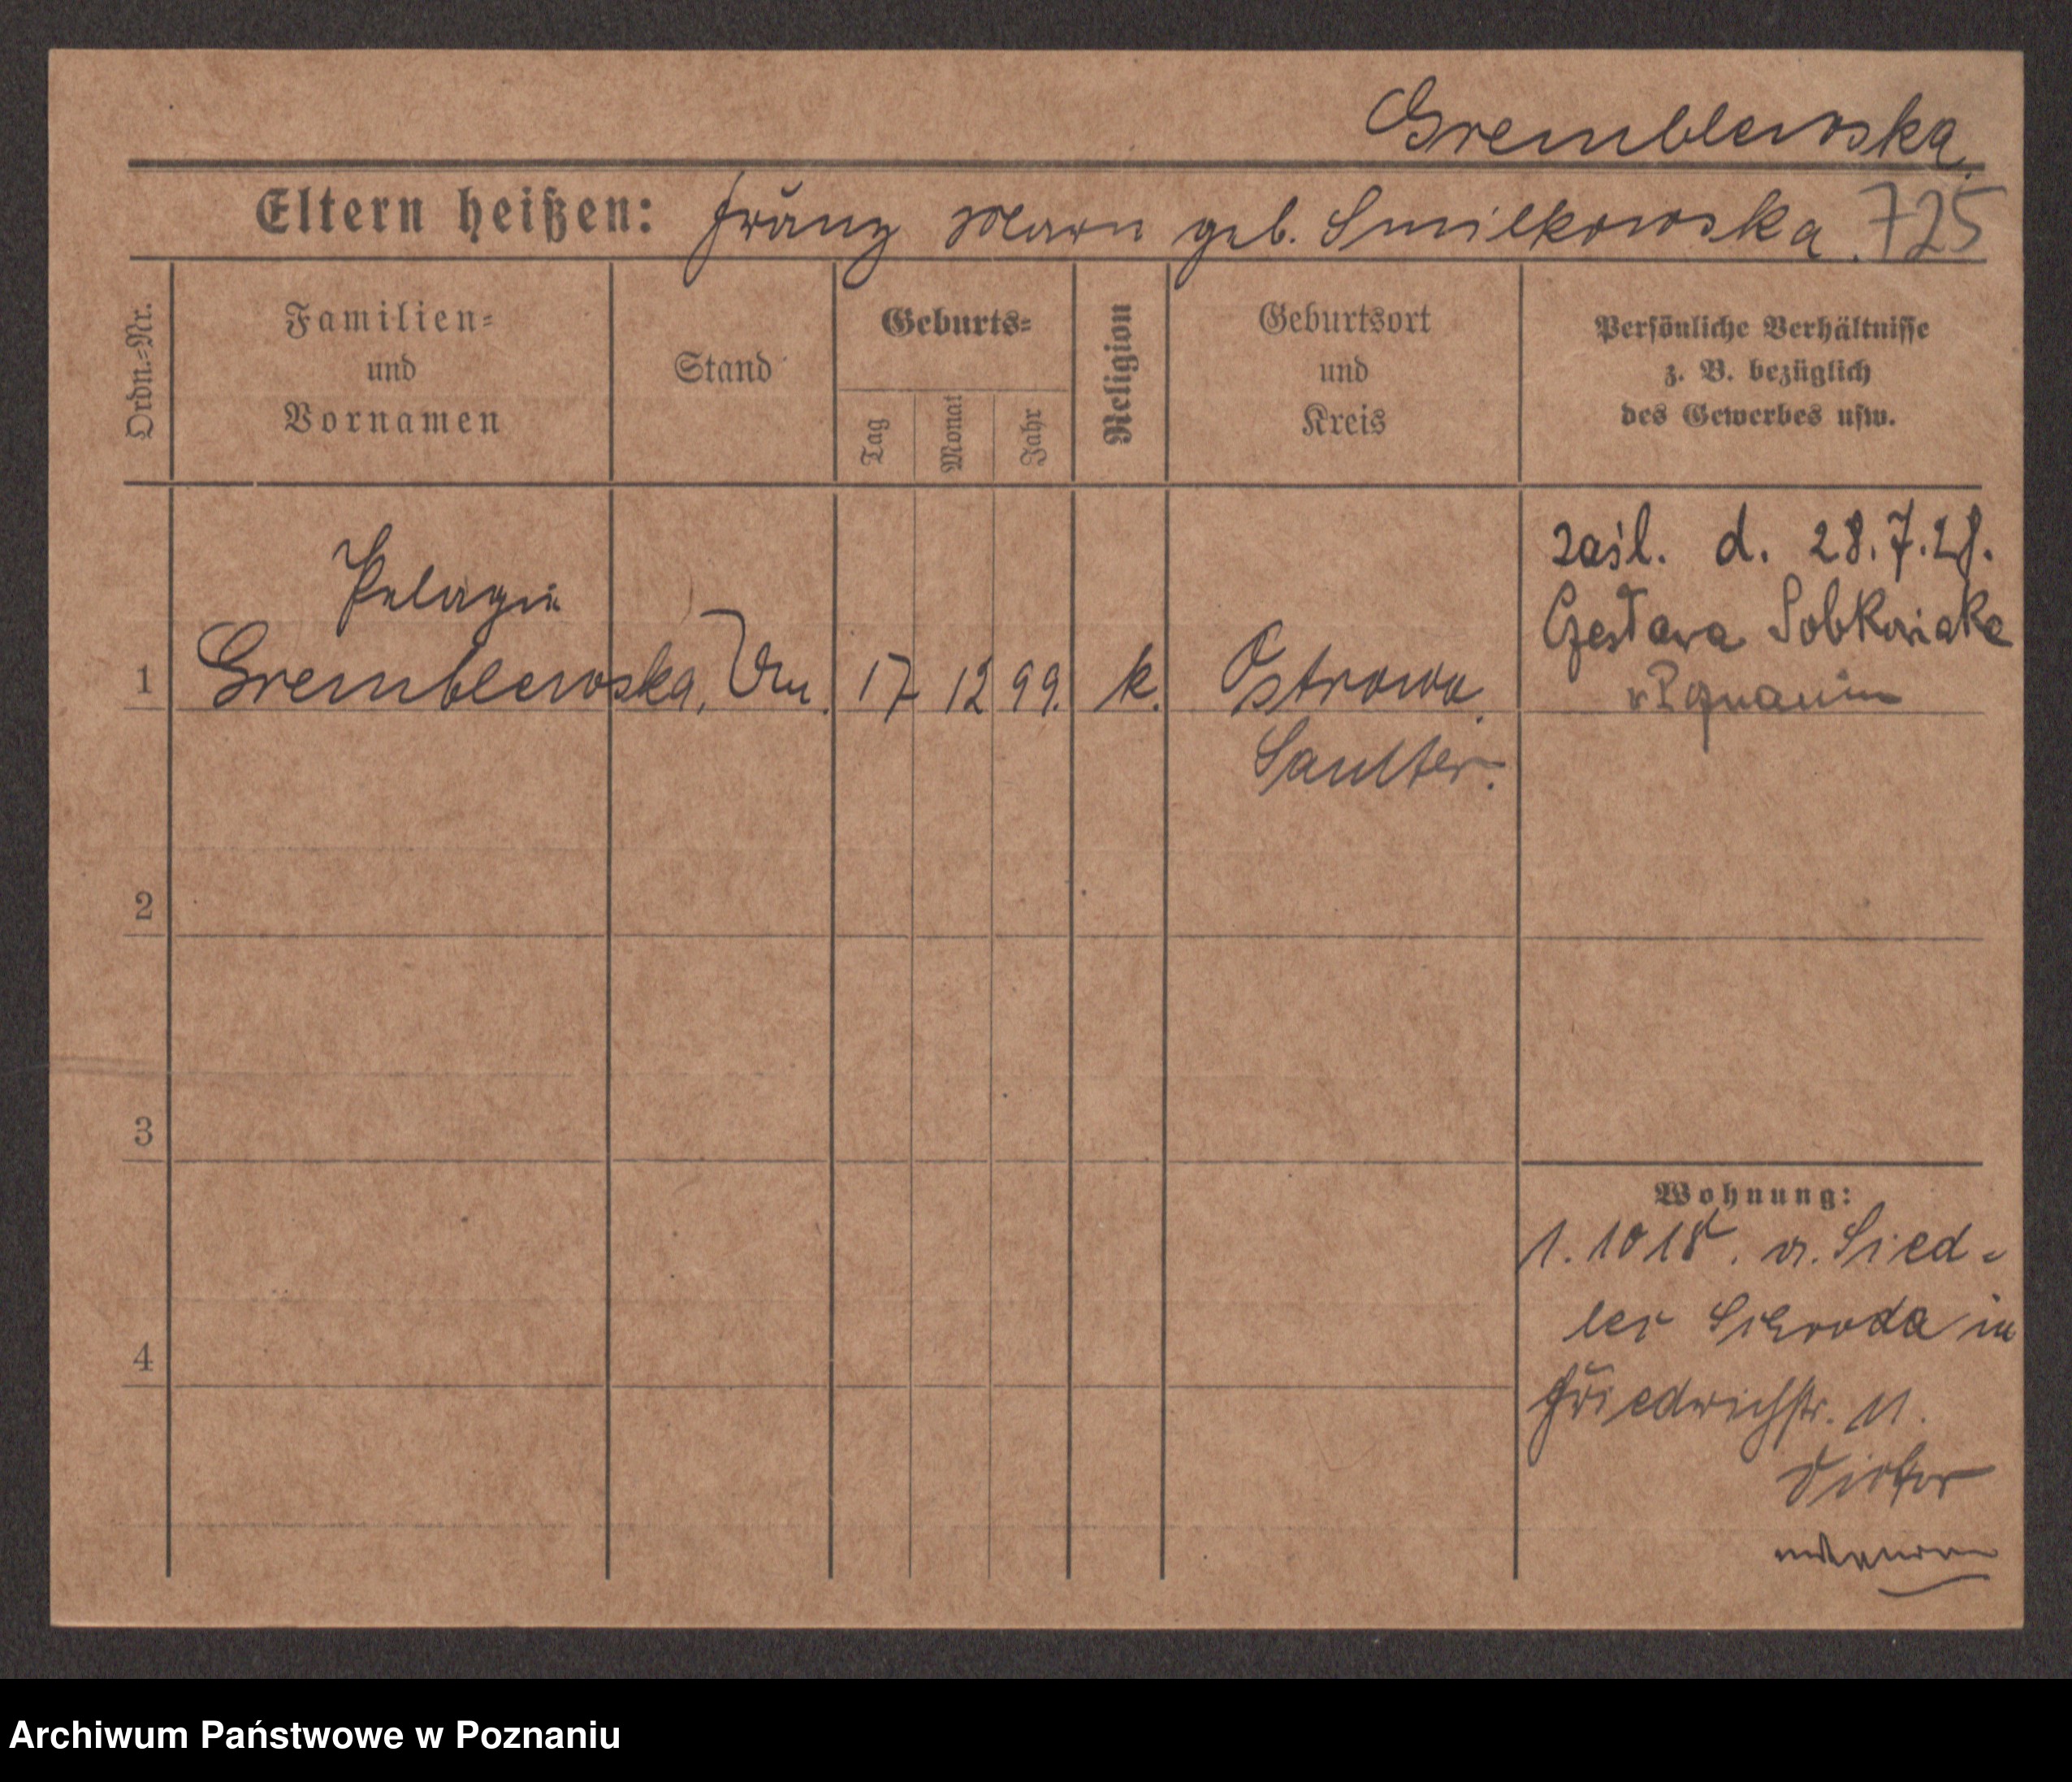 Gremblewska.
Eltern heißen: Franz Marn geb. Smilkowska. 725
Ordn.-Nr.
Familien-
und
Vornamen
Stand
Geburts-
Tag
Monat
Jahr
Religion
Geburtsort
und
Kreis
Persönliche Verhältnisse
z. B. bezüglich
des Gewerbes usw.
1
Pelagia
Gremblewska, 17 12 99. k.
Ostrowo.
Samter.
zaśl. d. 28.7.28.
Czesława Sobkowiaka
2
3
4
Wohnung:
1. 10 18. v. Sied-
ler Schroda in
Friedrichstr. 11.
Archiwum Państwowe w Poznaniu